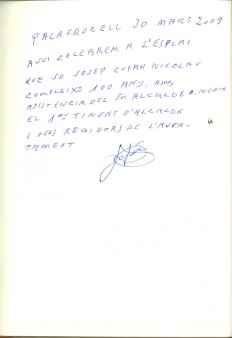 PALAFRUGELL 30 MARS 2009
AVUI CELEBREM A L'ESPLAI
QUE JO JOSEP NICOLAU
COMPLEIXO 100 ANYS, AMB
ASISTENCIA DEL Sr. ALCALDE
EL 1er TINENT D'ALCALDE
I DELS REGIDORS DE L'AJUN-
TAMENT